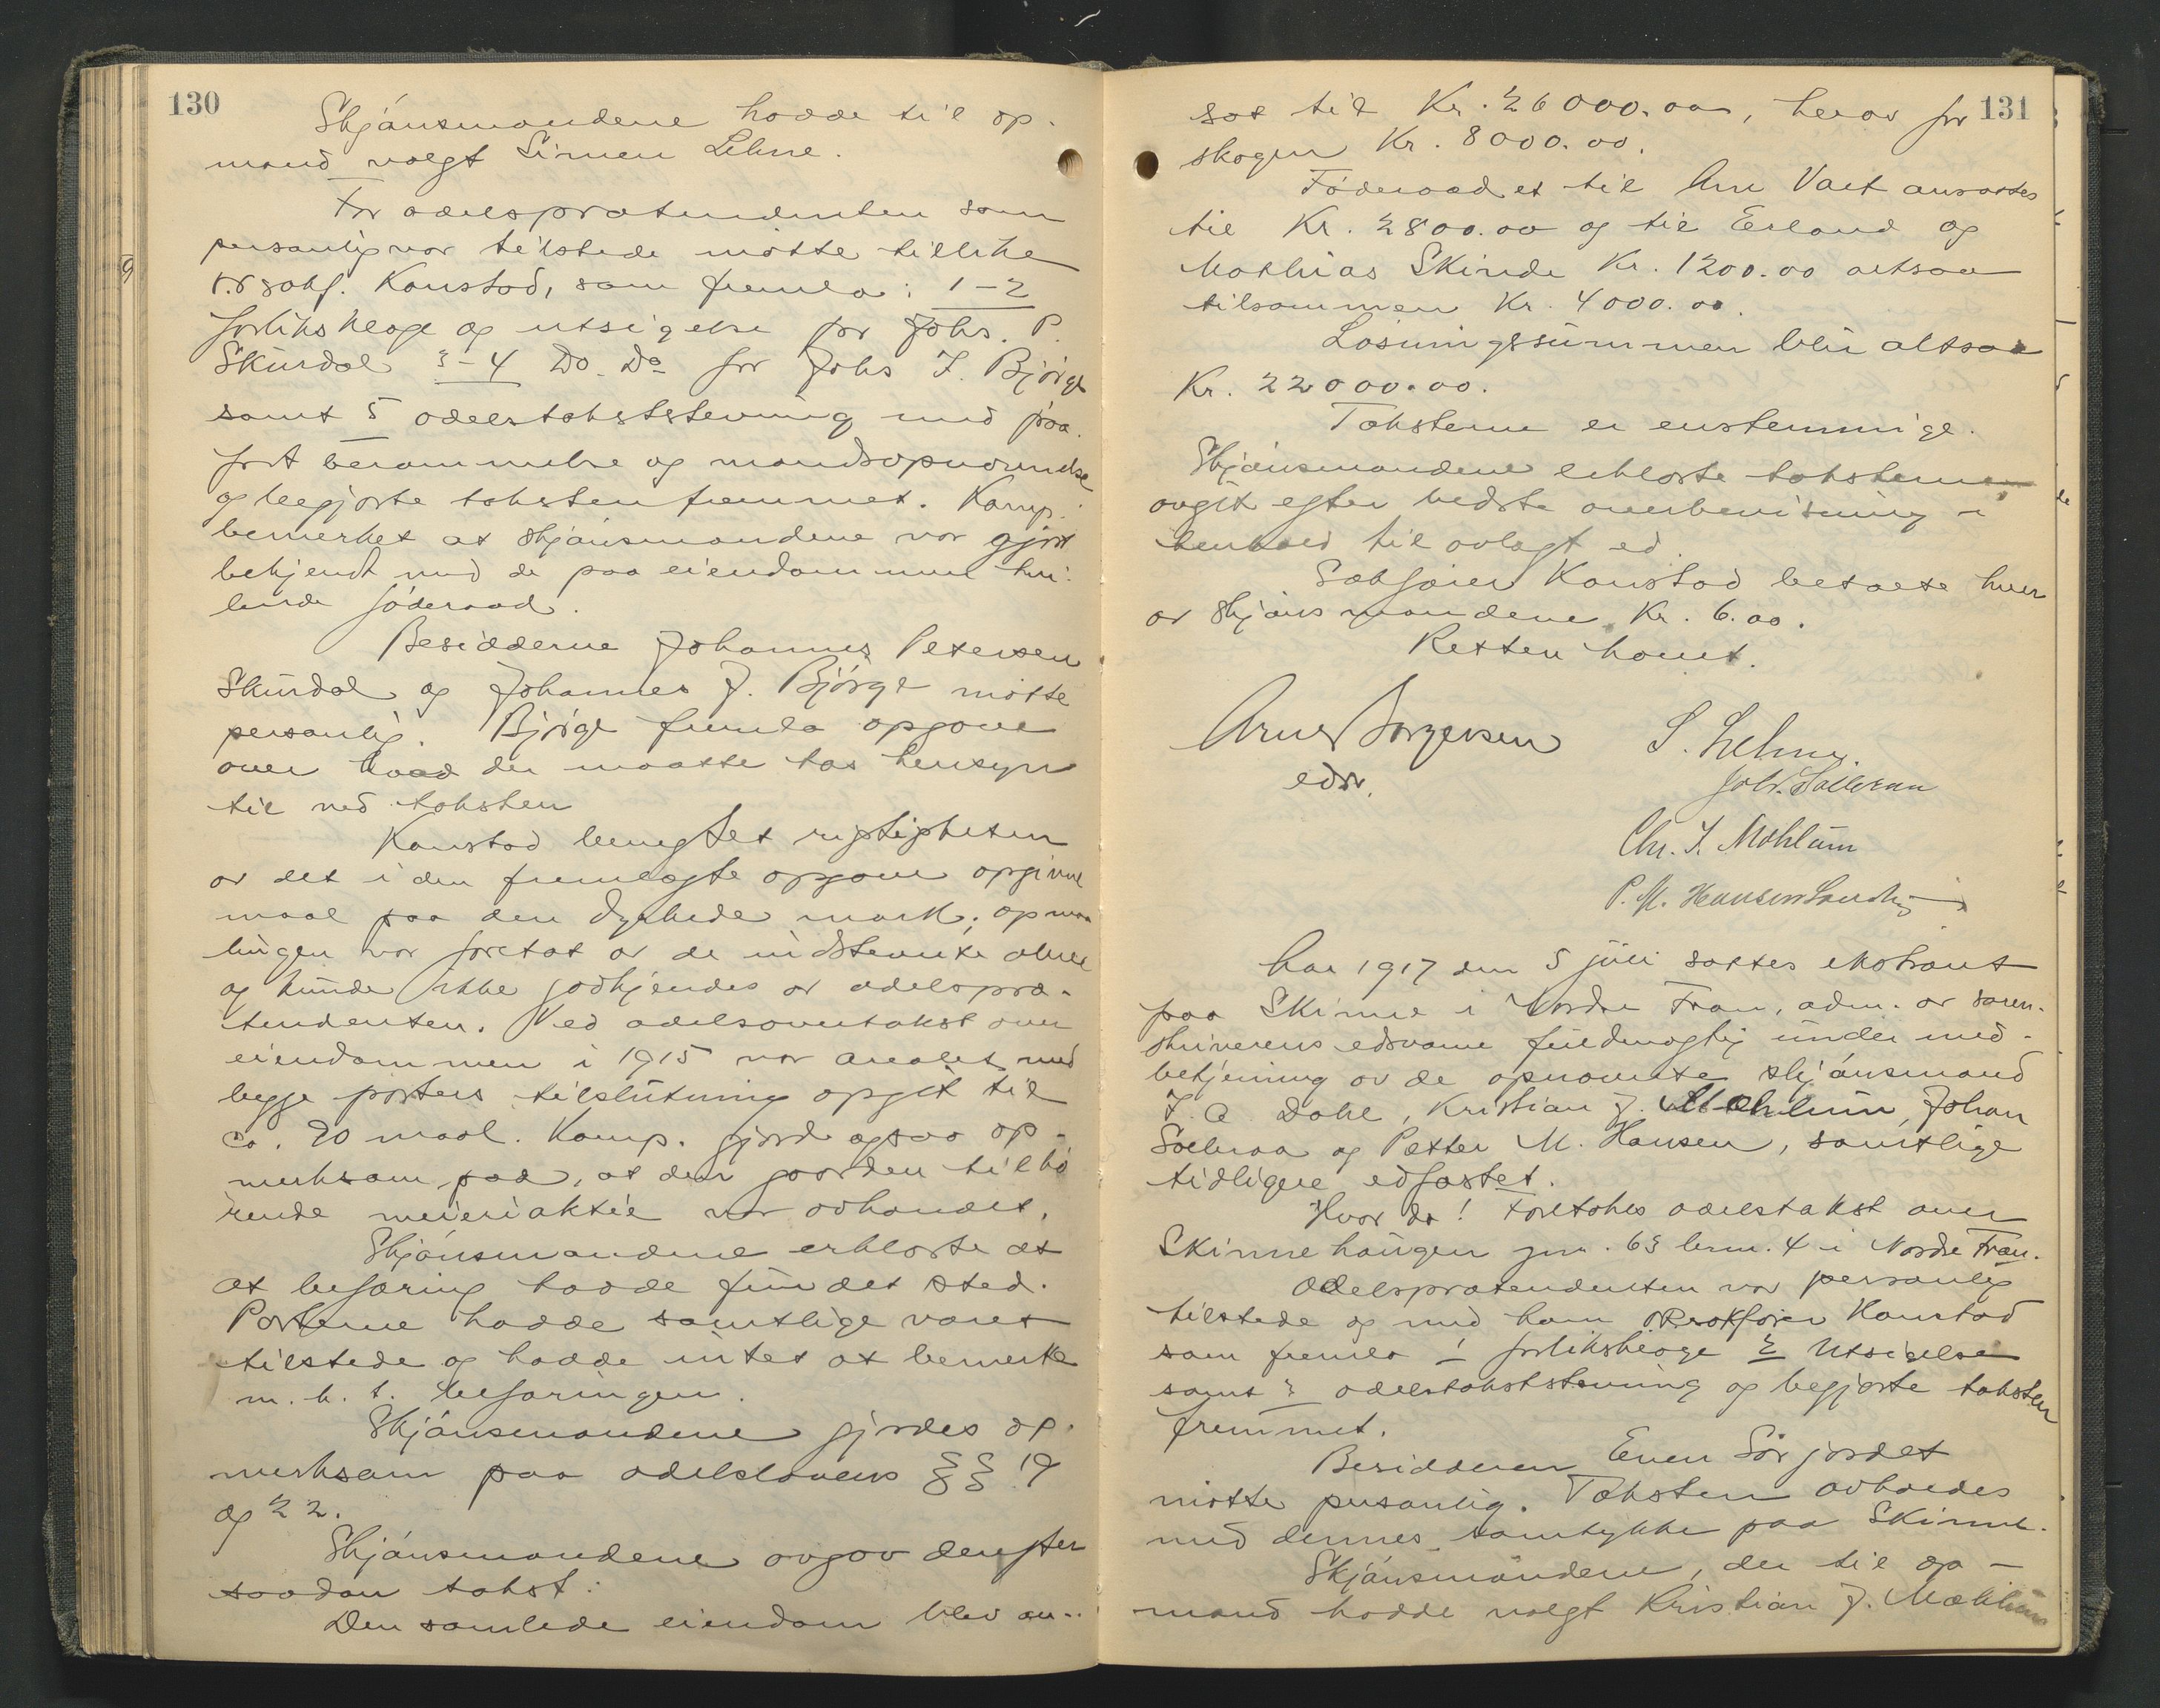 130
Skjønsmændene hadde til op-
mand valgt Simen Lehne.
For odelsprætendenten som
personlig var tilstede møtte tillike
o.r.sakf. Konstad, som fremla: 1-2
forliksklage og utsigelse for Johs. P.
Skurdal 3-4 Do. Do for Johs J. Bjørge
samt 5 odelstakststevning med paa-
ført berammelse og mandsopnævnelse
og begjærte taksten fremmet. Komp.
bemerket at skjønsmændene var gjort
bekjendt med de paa eiendommen hvi-
lende føderaad.
Besidderne Johannes Petersen
Skurdal og Johannes J. Bjørge møtte
personlig. Bjørge fremla opgave
over hvad der maatte tas hensyn
til ved taksten
Konstad benegtet rigtigheten
av det i den fremlagte opgave opgivne
maal paa den dyrkede mark; opmaa
lingen var foretat av de indstevnte alene
og kunde ikke godkjendes av odelspræ-
tendenten. Ved odelsovertakst over
eiendommen i 1915 var arealet med
begge parters tilslutning opgit til
ca. 90 maal. Komp. gjorde ogsaa op-
merksom paa, at den gaarden tilhø
rende meieriaktie var avhændet.
Skjønsmændene erklærte at
at befaring hadde fundet sted.
Parterne hadde samtlige været
tilstede og hadde intet at bemerke
m. h. t. befaringen.
Skjønsmændene gjordes op-
merksom paa odelslovens §§ 19
og 22.
Skjønsmændene avgav derefter
saadan takst:
Den samlede eiendom blev an-
131
sat til Kr. 26000.00, herav for
skogen Kr. 8000.00.
Føderaadet til Ane Valt ansattes
til Kr. 2800.00 og til Erland og
Mathias Skinde Kr. 1200.00 altsaa
tilsammen Kr. 4000.00.
Løsningssummen blir altsaa
Kr. 22000.00.
Taksterne er enstemmige.
Skjønsmændene erklærte taksterne
avgit efter bedste overbevisning i
henhold til avlagt ed.
Sakfører Konstad betalte hver
av skjønsmændene Kr. 6.00.
Retten hævet.
Arne Jørgensen
edsv.
S. Lehne
Joh. Solbraa
Chr. J. Mæhlum
P. M. Hansen
Aar 1917 den 5 juli sattes ekstraret
paa Skinne i Nordre Fron, adm. av soren-
skriverens edsvorne fuldmægtig under med-
betjening av de opnævnte skjønsmænd
J. A Dahl, Kristian J. Mæhlum, Johan
Solbraa og Petter M. Hansen, samtlige
tidligere edfæstet.
Hvor da! Foretokes odelstakst over
Skinnehaugen gnr. 63 brnr. 4 i Nordre Fron.
Odelsprætendenten var personlig
tilstede og med ham Orsakfører Konstad
som fremla 1 forliksklage 2 Utsigelse
samt 3 odelstakststevning og begjærte taksten
fremmet.
Besidderen Even Sørjordet
møtte personlig. Taksten avholdes
med dennes samtykke paa Skinne.
Skjønsmændene, der til op-
mand hadde valgt Kristian J. Mæhlum